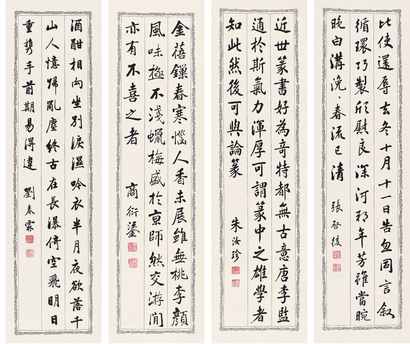 比使還辱去冬十月十一日告勿罔言叙
循環巧製欣慰良深河朔年芳雖當晼
晚白溝浼〻春流已清 張啟後
近世篆書好為奇特都無古意唐李監
通於斯氣力渾厚可謂篆中之雄學者
知此然後可與論篆 朱汝珍
金蓓鏁春寒惱人香未展雖無桃李顏
風味極不淺蠟梅盛於京師然交遊間
亦有不喜之者 商衍鎏
酒酣相向坐別淚濕吟衣半月夜欲落千
山人憶歸亂塵終古在長瀑倚空飛明日
重攜手前期易得違 劉春霖